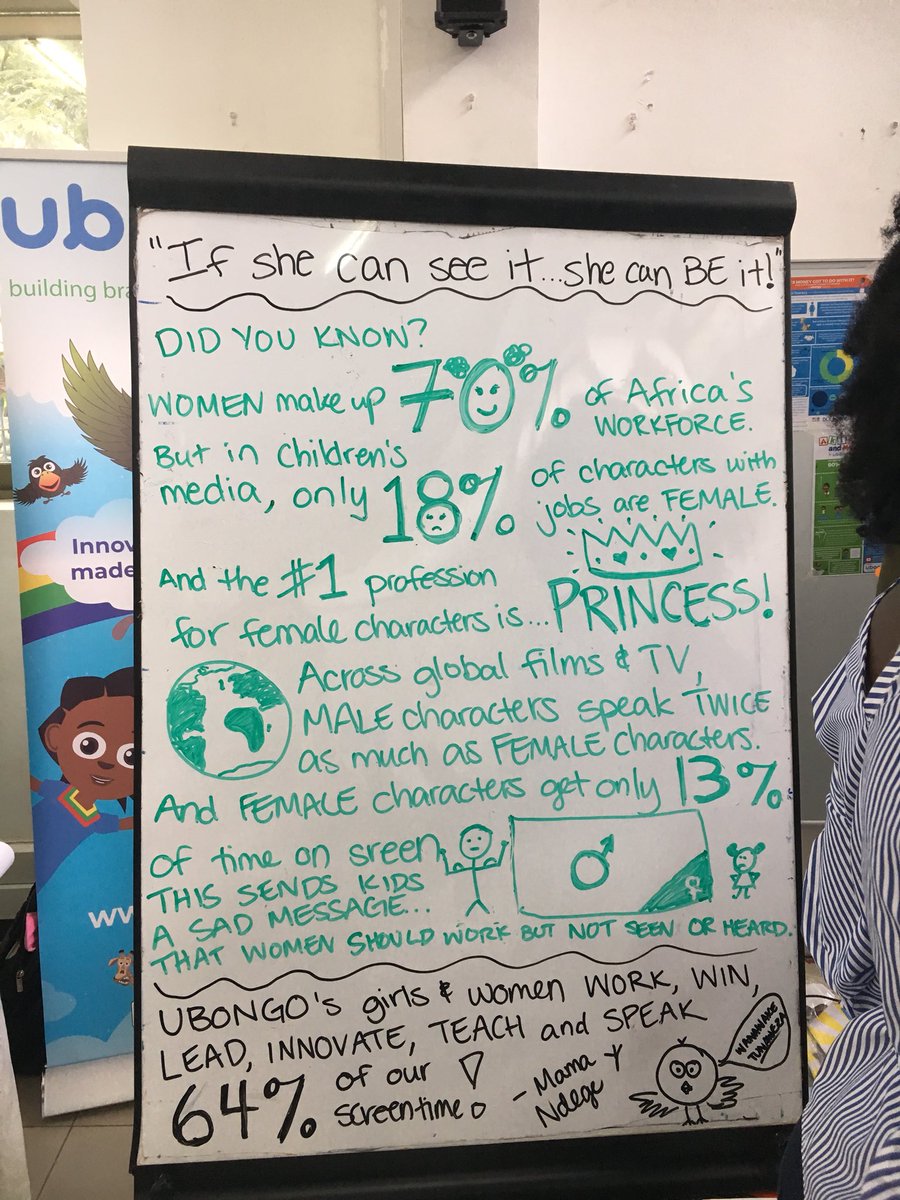 ub
building bra
Innov
made
ww
"If she can see it...she can BE it!"
DID YOU KNOW?
WOMEN make up 70% of Africa's
WORKFORCE.
But in children's
media, only 18% of characters with
jobs are FEMALE.
And the #1 profession
for female characters is... PRINCESS!
Across global films & TV,
MALE characters speak TWICE
as much as FEMALE characters.
And FEMALE characters get only 13%
of time on sreen
THIS SENDS KIDS
A SAD MESSAGE...
THAT WOMEN SHOULD WORK BUT NOT SEEN OR HEARD.
UBONGO's girls & women WORK, WIN,
LEAD, INNOVATE, TEACH and SPEAK
64% of our
screentime!
- Mama
Ndege
WANAWAKE
TUNAWEZA